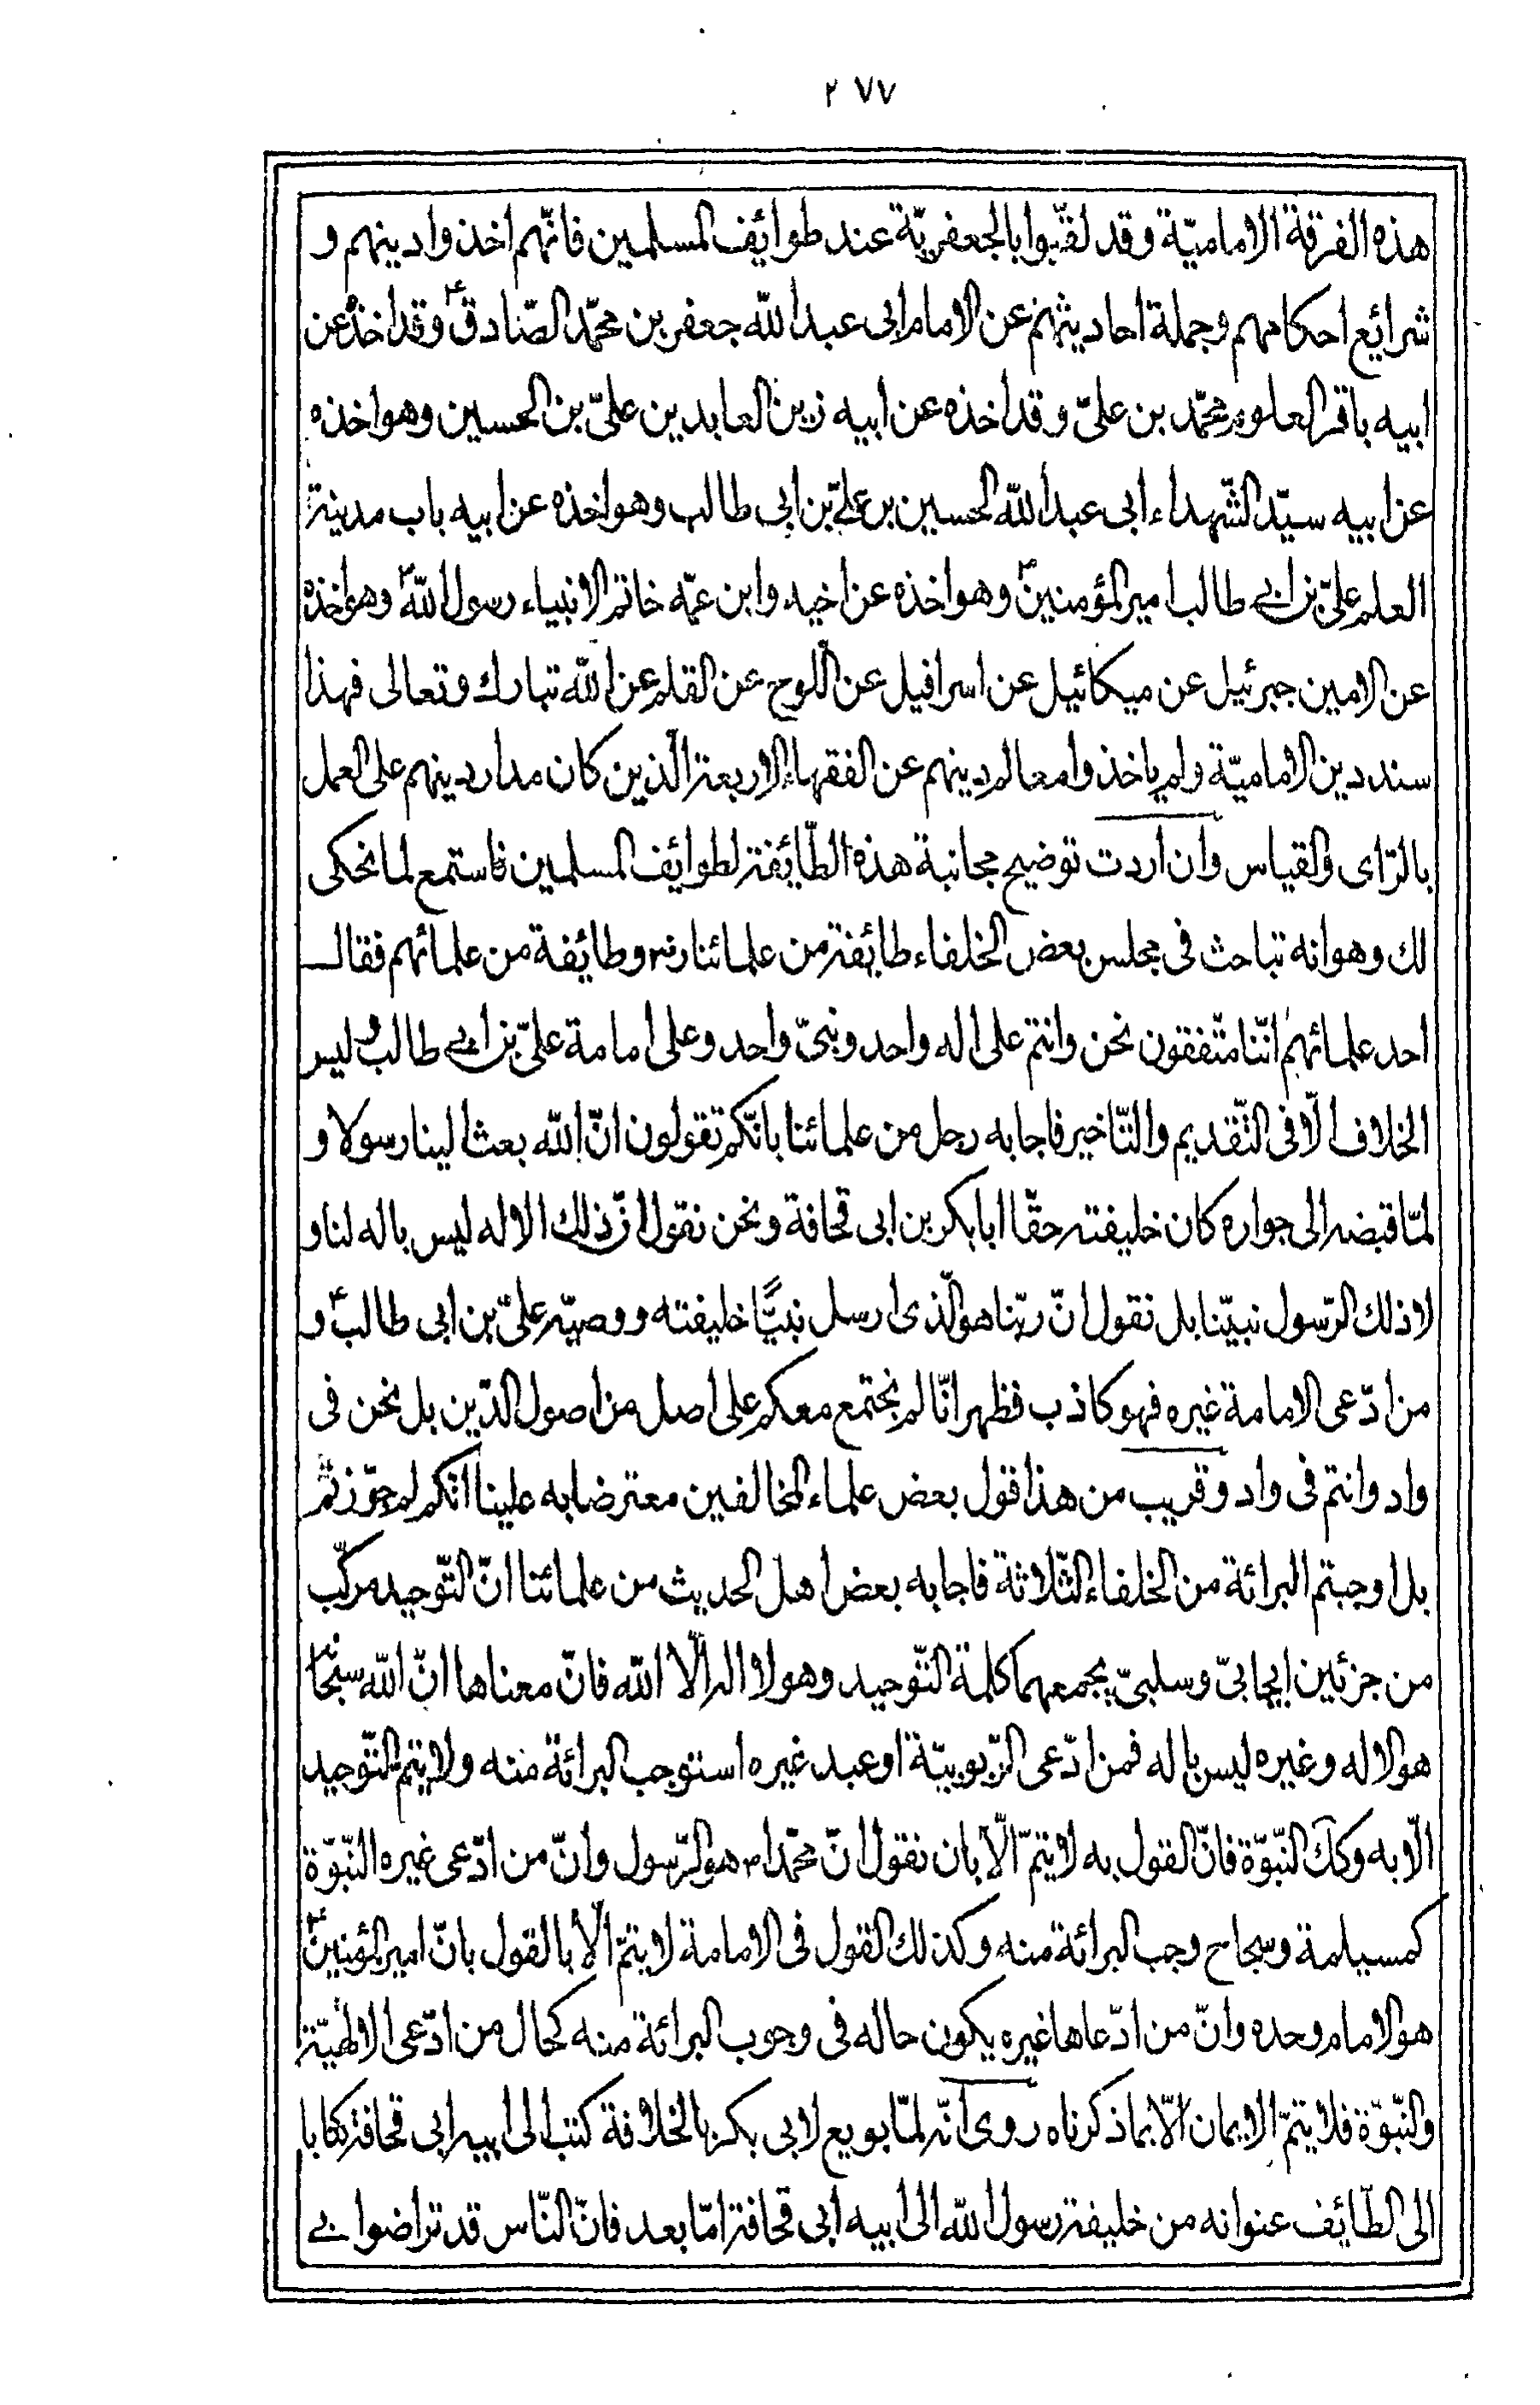 ٢٧٧
هذه الفرقة الاماميّة وقد لقّبوا بالجعفريّة عند طوائف المسلمين فانّهم اخذوا دينهم و
شرائع احكامهم وجملة احاديثهم عن الامام ابى عبد اللّه جعفر بن محمّد الصّادق ع وقد اخذه عن
ابيه باقر العلوم محمّد بن علىّ وقد اخذه عن ابيه زين العابدين علىّ بن الحسين وهو اخذه
عن ابيه سيّد الشّهداء ابى عبد اللّه الحسين بن علىّ بن ابى طالب وهو اخذه عن ابيه باب مدينة
العلم علىّ بن ابى طالب امير المؤمنين ع وهو اخذه عن اخيه وابن عمّه خاتم الانبياء رسول اللّه ص وهو اخذه
عن الامين جبرئيل عن ميكائيل عن اسرافيل عن اللّوح عن القلم عن اللّه تبارك وتعالى فهذا
سند دين الاماميّة ولم ياخذوا معالم دينهم عن الفقهاء الاربعة الّذين كان مدار دينهم على العمل
بالرّاى والقياس وان اردت توضيح مجانبة هذه الطّائفة لطوائف المسلمين فاستمع لما نحكى
لك وهو انه تباحث فى مجلس بعض الخلفاء طائفة من علمائنا ره وطائفة من علمائهم فقال
احد علمائهم انّنا متّفقون نحن وانتم على اله واحد ونبىّ واحد وعلى امامة علىّ بن ابى طالب وليس
الخلاف الّا فى التّقديم والتّاخير فاجابه رجل من علمائنا بانّكم تقولون انّ اللّه بعث الينا رسولا و
لمّا قبضه الى جواره كان خليفته حقّا ابا بكر بن ابى قحافة ونحن نقول انّ ذلك الاله ليس باله لنا و
لا ذلك الرّسول نبيّنا بل نقول انّ ربّنا هو الّذى ارسل نبيًّا خليفته ووصيّه علىّ بن ابى طالب ع و
من ادّعى الامامة غيره فهو كاذب فظهر انّا لم نجتمع معكم على اصل من اصول الدّين بل نحن فى
واد وانتم فى واد وقريب من هذا قول بعض علماء المخالفين معترضا به علينا انكم لم جوّزتم
بل اوجبتم البرائة من الخلفاء الثّلاثة فاجابه بعض اهل الحديث من علمائنا انّ التّوحيد مركّب
من جزئين ايجابىّ وسلبىّ يجمعهما كلمة التّوحيد وهو لا اله الّا اللّه فانّ معناها انّ اللّه سبحا
هو الاله وغيره ليس باله فمن ادّعى الرّبوبيّة او عبد غيره استوجب البرائة منه ولا يتمّ التّوحيد
الّا به وكك النّبوّة فانّ القول به لا يتمّ الّا بان نقول انّ محمّدا ص هو الرّسول وانّ من ادّعى غيره النّبوّة
كمسيلمة وسجاح وجب البرائة منه وكذلك القول فى الامامة لا يتمّ الّا بالقول بانّ امير المؤمنين ع
هو الامام وحده وانّ من ادّعاها غيره يكون حاله فى وجوب البرائة منه كحال من ادّعى الالهيّة
والنّبوّة فلا يتمّ الايمان الّا بما ذكرناه روى انّه لمّا بويع لابى بكر بالخلافة كتب الى ابيه ابى قحافة كتابا
الى الطّائف عنوانه من خليفة رسول اللّه الى ابيه ابى قحافة امّا بعد فانّ النّاس قد تراضوا بى